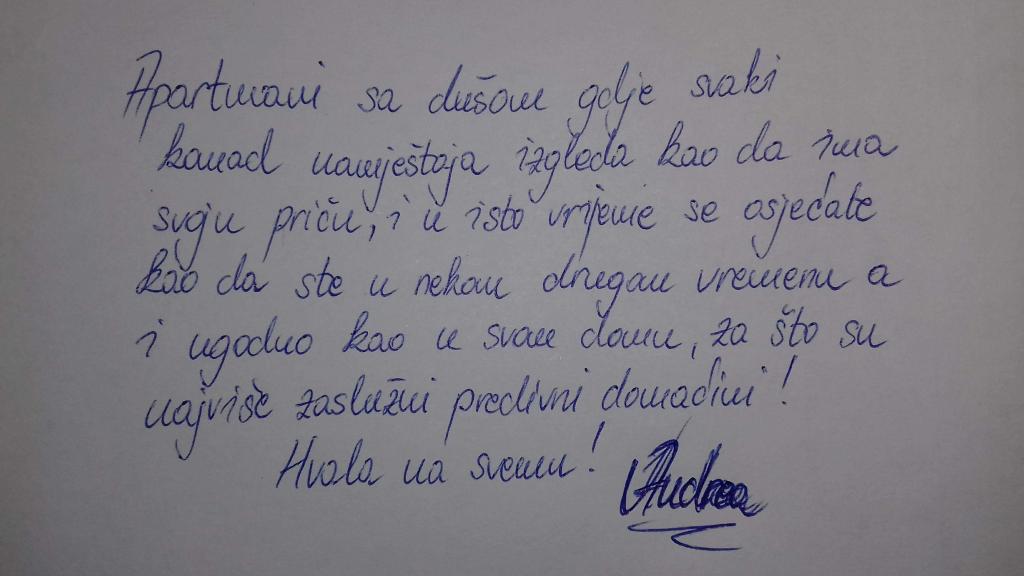 Apartmani sa dušom gdje svaki
komad namještaja izgleda kao da ima
svoju priču, i u isto vrijeme se osjećate
kao da ste u nekom drugom vremenu a
i ugodno kao u svom domu, za što su
najviše zaslužni predivni domaćini!
Hvala na svemu!
Andrea